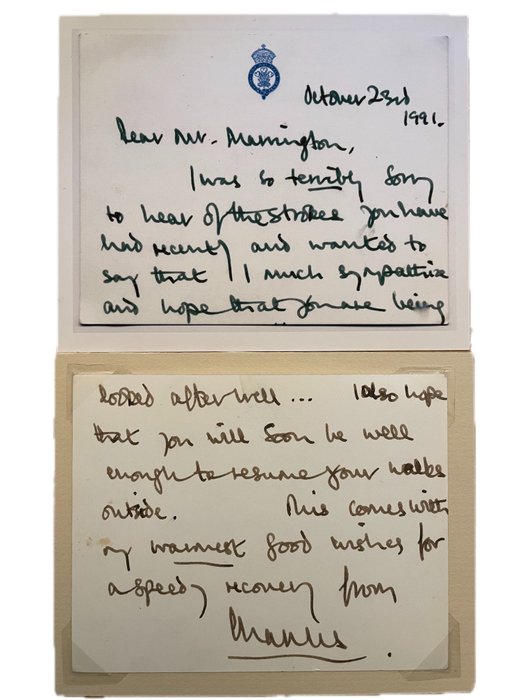 October 23rd
1991.
Dear Mr. Mannington,
I was so terribly sorry
to hear of the stroke you have
had recently and wanted to
say that I much sympathize
and hope that you are being
looked after well ... I also hope
that you will soon be well
enough to resume your walks
outside. This comes with
my warmest good wishes for
a speedy recovery from
Charles